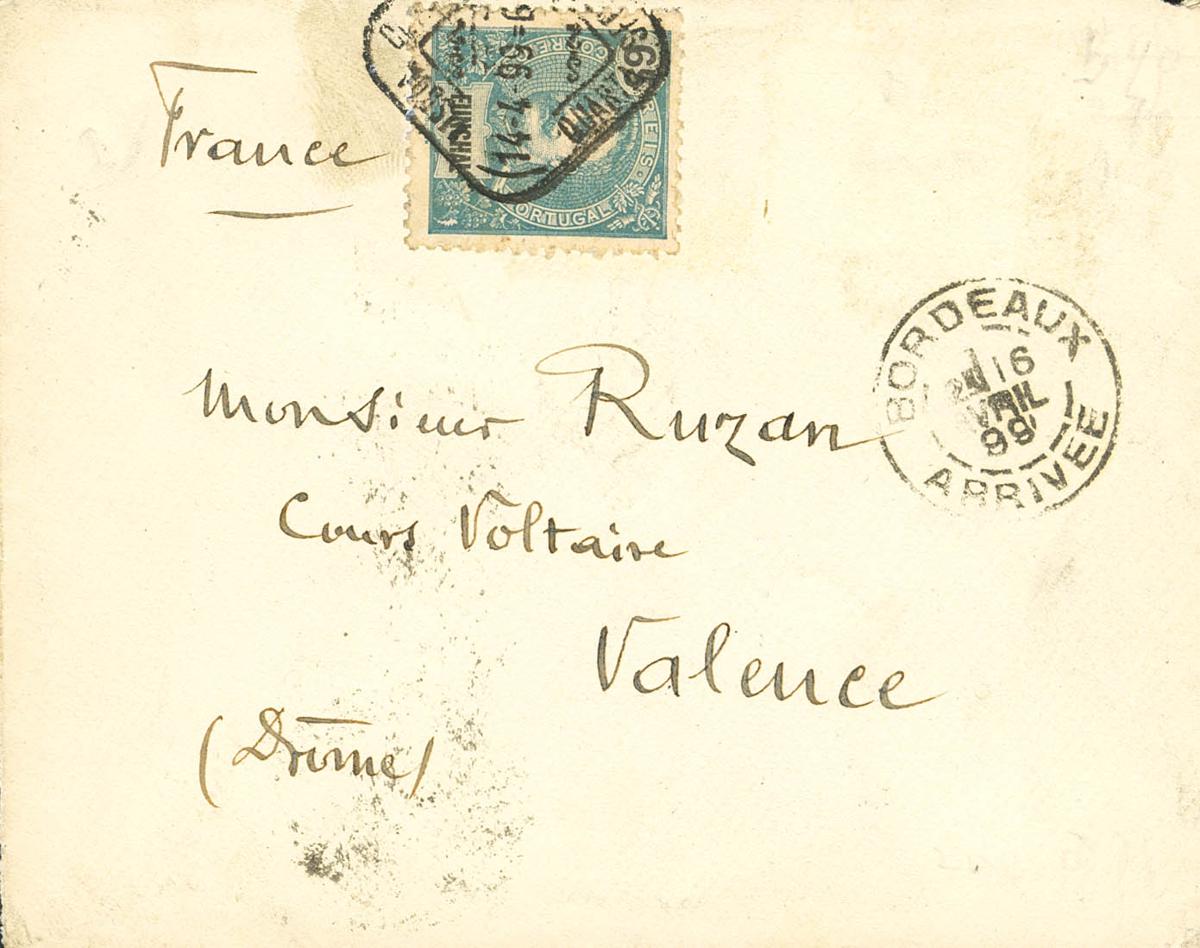 France
CORRE
65
REIS
PORTUGAL
14-4-99-6
QUAR
BORDEAUX
16
AVRIL
99
ARRIVEE
Monsieur Ruzan
Cours Voltaire
Valence
(Drôme)